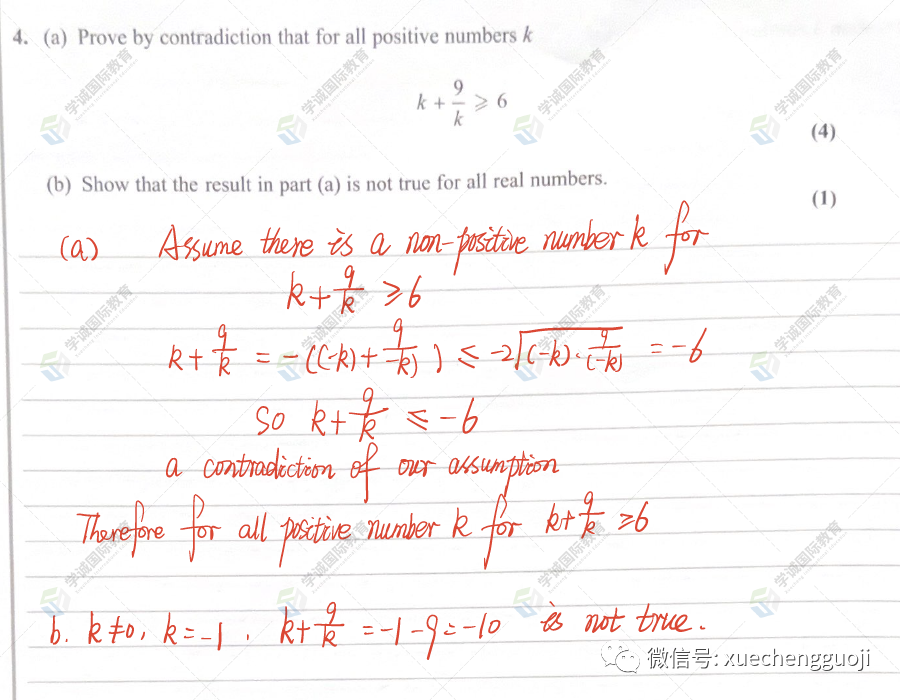 4. (a) Prove by contradiction that for all positive numbers k
k + 9/k ⩾ 6
(4)
(b) Show that the result in part (a) is not true for all real numbers.
(1)
(a) Assume there is a non-positive number k for
k + 9/k ⩾ 6
k + 9/k = -((-k) + 9/(-k)) ⩽ -2√((-k)·9/(-k)) = -6
So k + 9/k ⩽ -6
a contradiction of our assumption
Therefore for all positive number k for k + 9/k ⩾ 6
b. k≠0, k = -1, k + 9/k = -1 - 9 = -10 is not true.
微信号: xuechengguoji
学诚国际教育